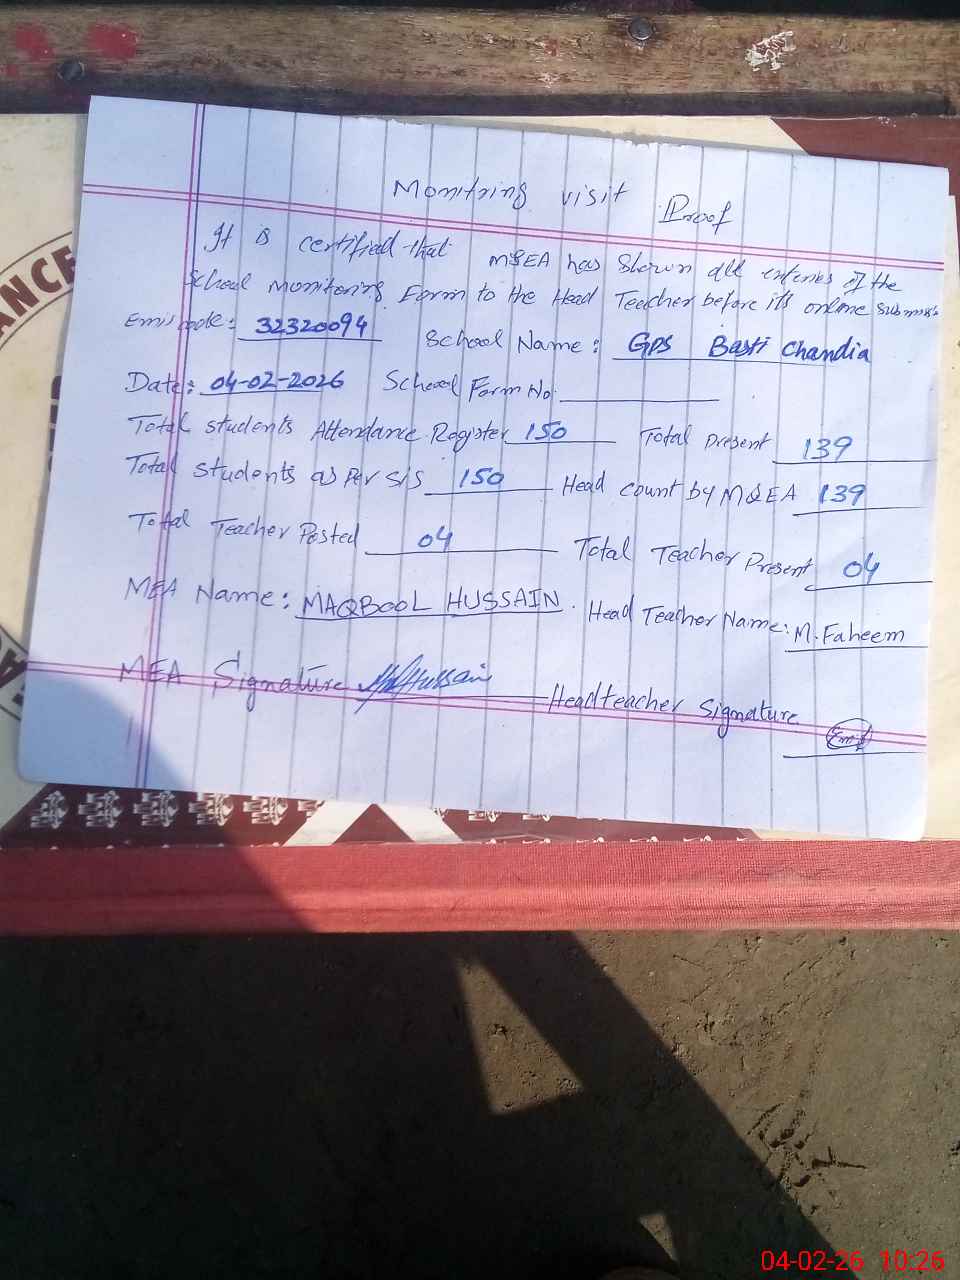 Monitring visit Proof
It is certified that MQEA has Shown all entries of the
School Monitoring Form to the Head Teacher before its online submiss
Emis code: 32320094 School Name: GPS Basti Chandia
Date: 04-02-2026 School Form No.
Total students Attendance Register 150 Total Present 139
Total Students as Per SIS 150 Head count by MQEA 139
Total Teacher Posted 04 Total Teacher Present 04
MEA Name: MAQBOOL HUSSAIN. Head Teacher Name: M. Faheem
MEA Signature Hussain Headteacher Signature
ANCE
04-02-26 10:26